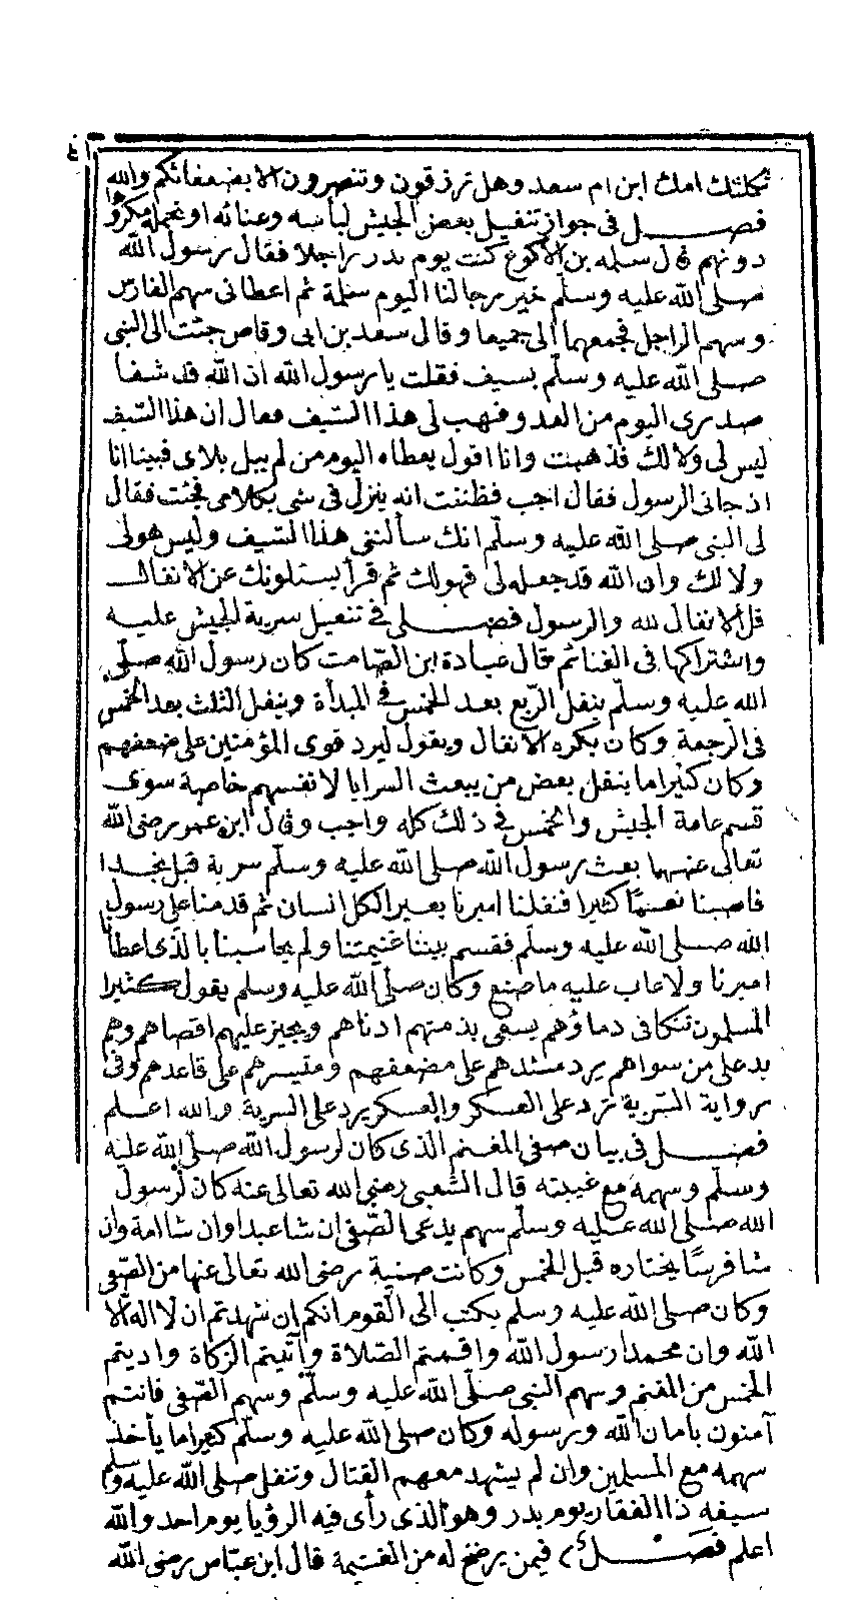 ثكلتك امك ابن ام سعد وهل ترزقون وتنصرون الا بضعفائكم والله
فصل في جواز تنفيل بعض الجيش لبأسه وعنائه او تحمله مكروها
دونهم قال سلمه بن الاكوع كنت يوم بدر راجلا فقال رسول الله
صلى الله عليه وسلم خير رجالنا اليوم سلمة ثم اعطانى سهم الفارس
وسهم الراجل فجمعهما الى جميعا وقال سعد بن ابى وقاص جئت الى النبى
صلى الله عليه وسلم بسيف فقلت يا رسول الله ان الله قد شفا
صدرى اليوم من العدو فهب لى هذا السيف فقال ان هذا السيف
ليس لى ولا لك فذهبت وانا اقول يعطاه اليوم من لم يبل بلاى فبينا انا
اذ جانى الرسول فقال اجب فظننت انه ينزل فى شى بكلامى فجئت فقال
لى النبى صلى الله عليه وسلم انك سألتنى هذا السيف وليس هو لى
ولا لك وان الله قد جعله لى فهو لك ثم قرأ يسئلونك عن الانفال
قل الانفال لله والرسول فصل فى تنفيل سرية الجيش عليه
واشتراكها فى الغنائم قال عبادة ابن الصامت كان رسول الله صلى
الله عليه وسلم ينفل الربع بعد الخمس فى البدأة وينفل الثلث بعد الخمس
فى الرجعة وكان يكره الانفال ويقول ليرد قوى المؤمنين على ضعفهم
وكان كثيرا ما ينفل بعض من يبعث السرايا لانفسهم خاصة سوى
قسم عامة الجيش والخمس فى ذلك كله واجب وقال ابن عمر رضى الله
تعالى عنهما بعث رسول الله صلى الله عليه وسلم سرية قبل نجدا
فاصبنا نعما كثيرا فنفلنا اميرنا بعيرا لكل انسان ثم قدمنا على رسول
الله صلى الله عليه وسلم فقسم بيننا غنيمتنا ولم يحاسبنا بالذى اعطانا
اميرنا ولا عاب عليه ما صنع وكان صلى الله عليه وسلم يقول كثيرا
المسلمون تتكافى دماؤهم يسعى بذمتهم ادناهم ويجيز عليهم اقصاهم وهم
يد على من سواهم يرد مشدهم على مضعفهم ومتيسرهم على قاعدهم وفى
رواية السرية ترد على العسكر والعسكر يرد على السرية والله اعلم
فصل فى بيان صفى المغنم الذى كان لرسول الله صلى الله عليه
وسلم وسهمه مع غيبته قال الشعبى رضى الله تعالى عنه كان لرسول
الله صلى الله عليه وسلم سهم يدعى الصفى ان شا عبدا وان شا امة وان
شا فرسا يختاره قبل الخمس وكانت صفية رضى الله تعالى عنها من الصفى
وكان صلى الله عليه وسلم يكتب الى القوم انكم ان شهدتم ان لا اله الا
الله وان محمدا رسول الله واقمتم الصلاة وآتيتم الزكاة واديتم
الخمس من المغنم وسهم النبى صلى الله عليه وسلم وسهم الصفى فانتم
آمنون بامان الله ورسوله وكان صلى الله عليه وسلم كثيرا ما يأخذ
سهمه مع المسلمين وان لم يشهد معهم القتال وتنفل صلى الله عليه وسلم
سيفه ذا الفقار يوم بدر وهو الذى رأى فيه الرؤيا يوم احد والله
اعلم فصل فيمن يرضخ له من الغنيمة قال ابن عباس رضى الله